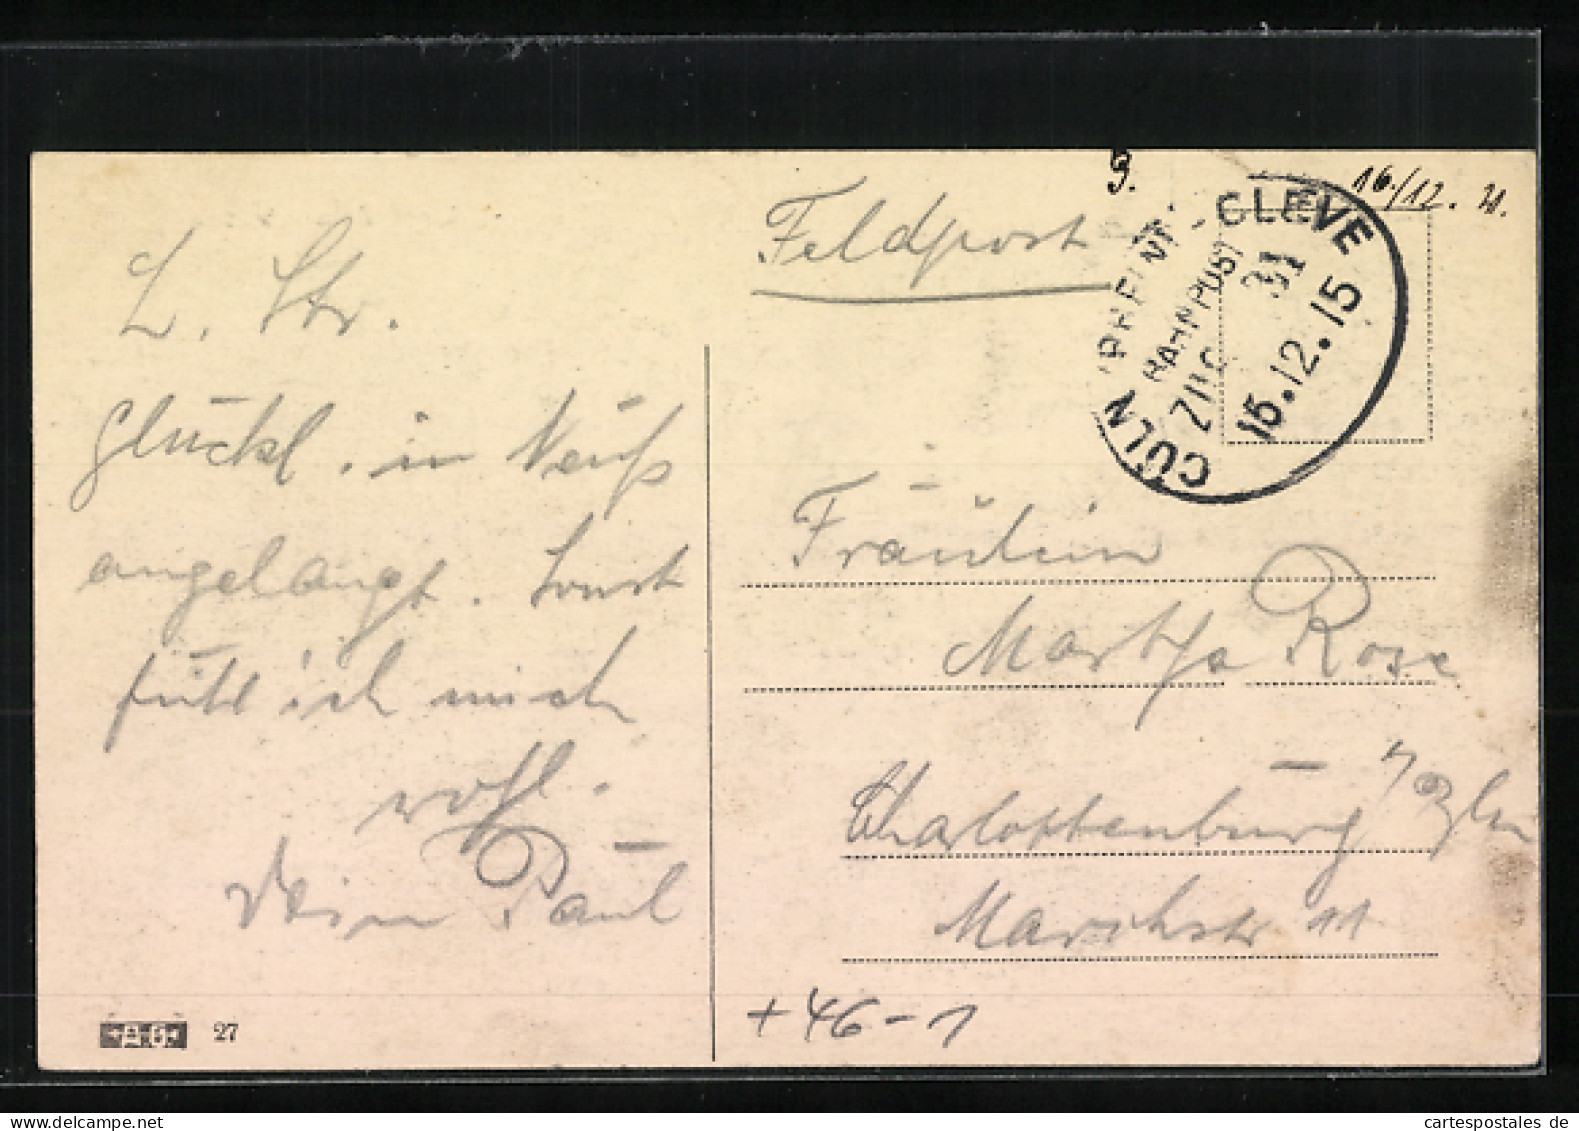 L. Str.
glückl. in Neuß
angelangt. Sonst
fühl ich mich
wohl.
Dein Paul
A G 27
Feldpost
9.
16/12. N.
CÖLN (RHEIN) - CLEVE
BAHNPOST
ZUG 31
15.12.15
Fräulein
Martha Rose
Charlottenburg
Marchstr 11
+46-1
cartespostales de